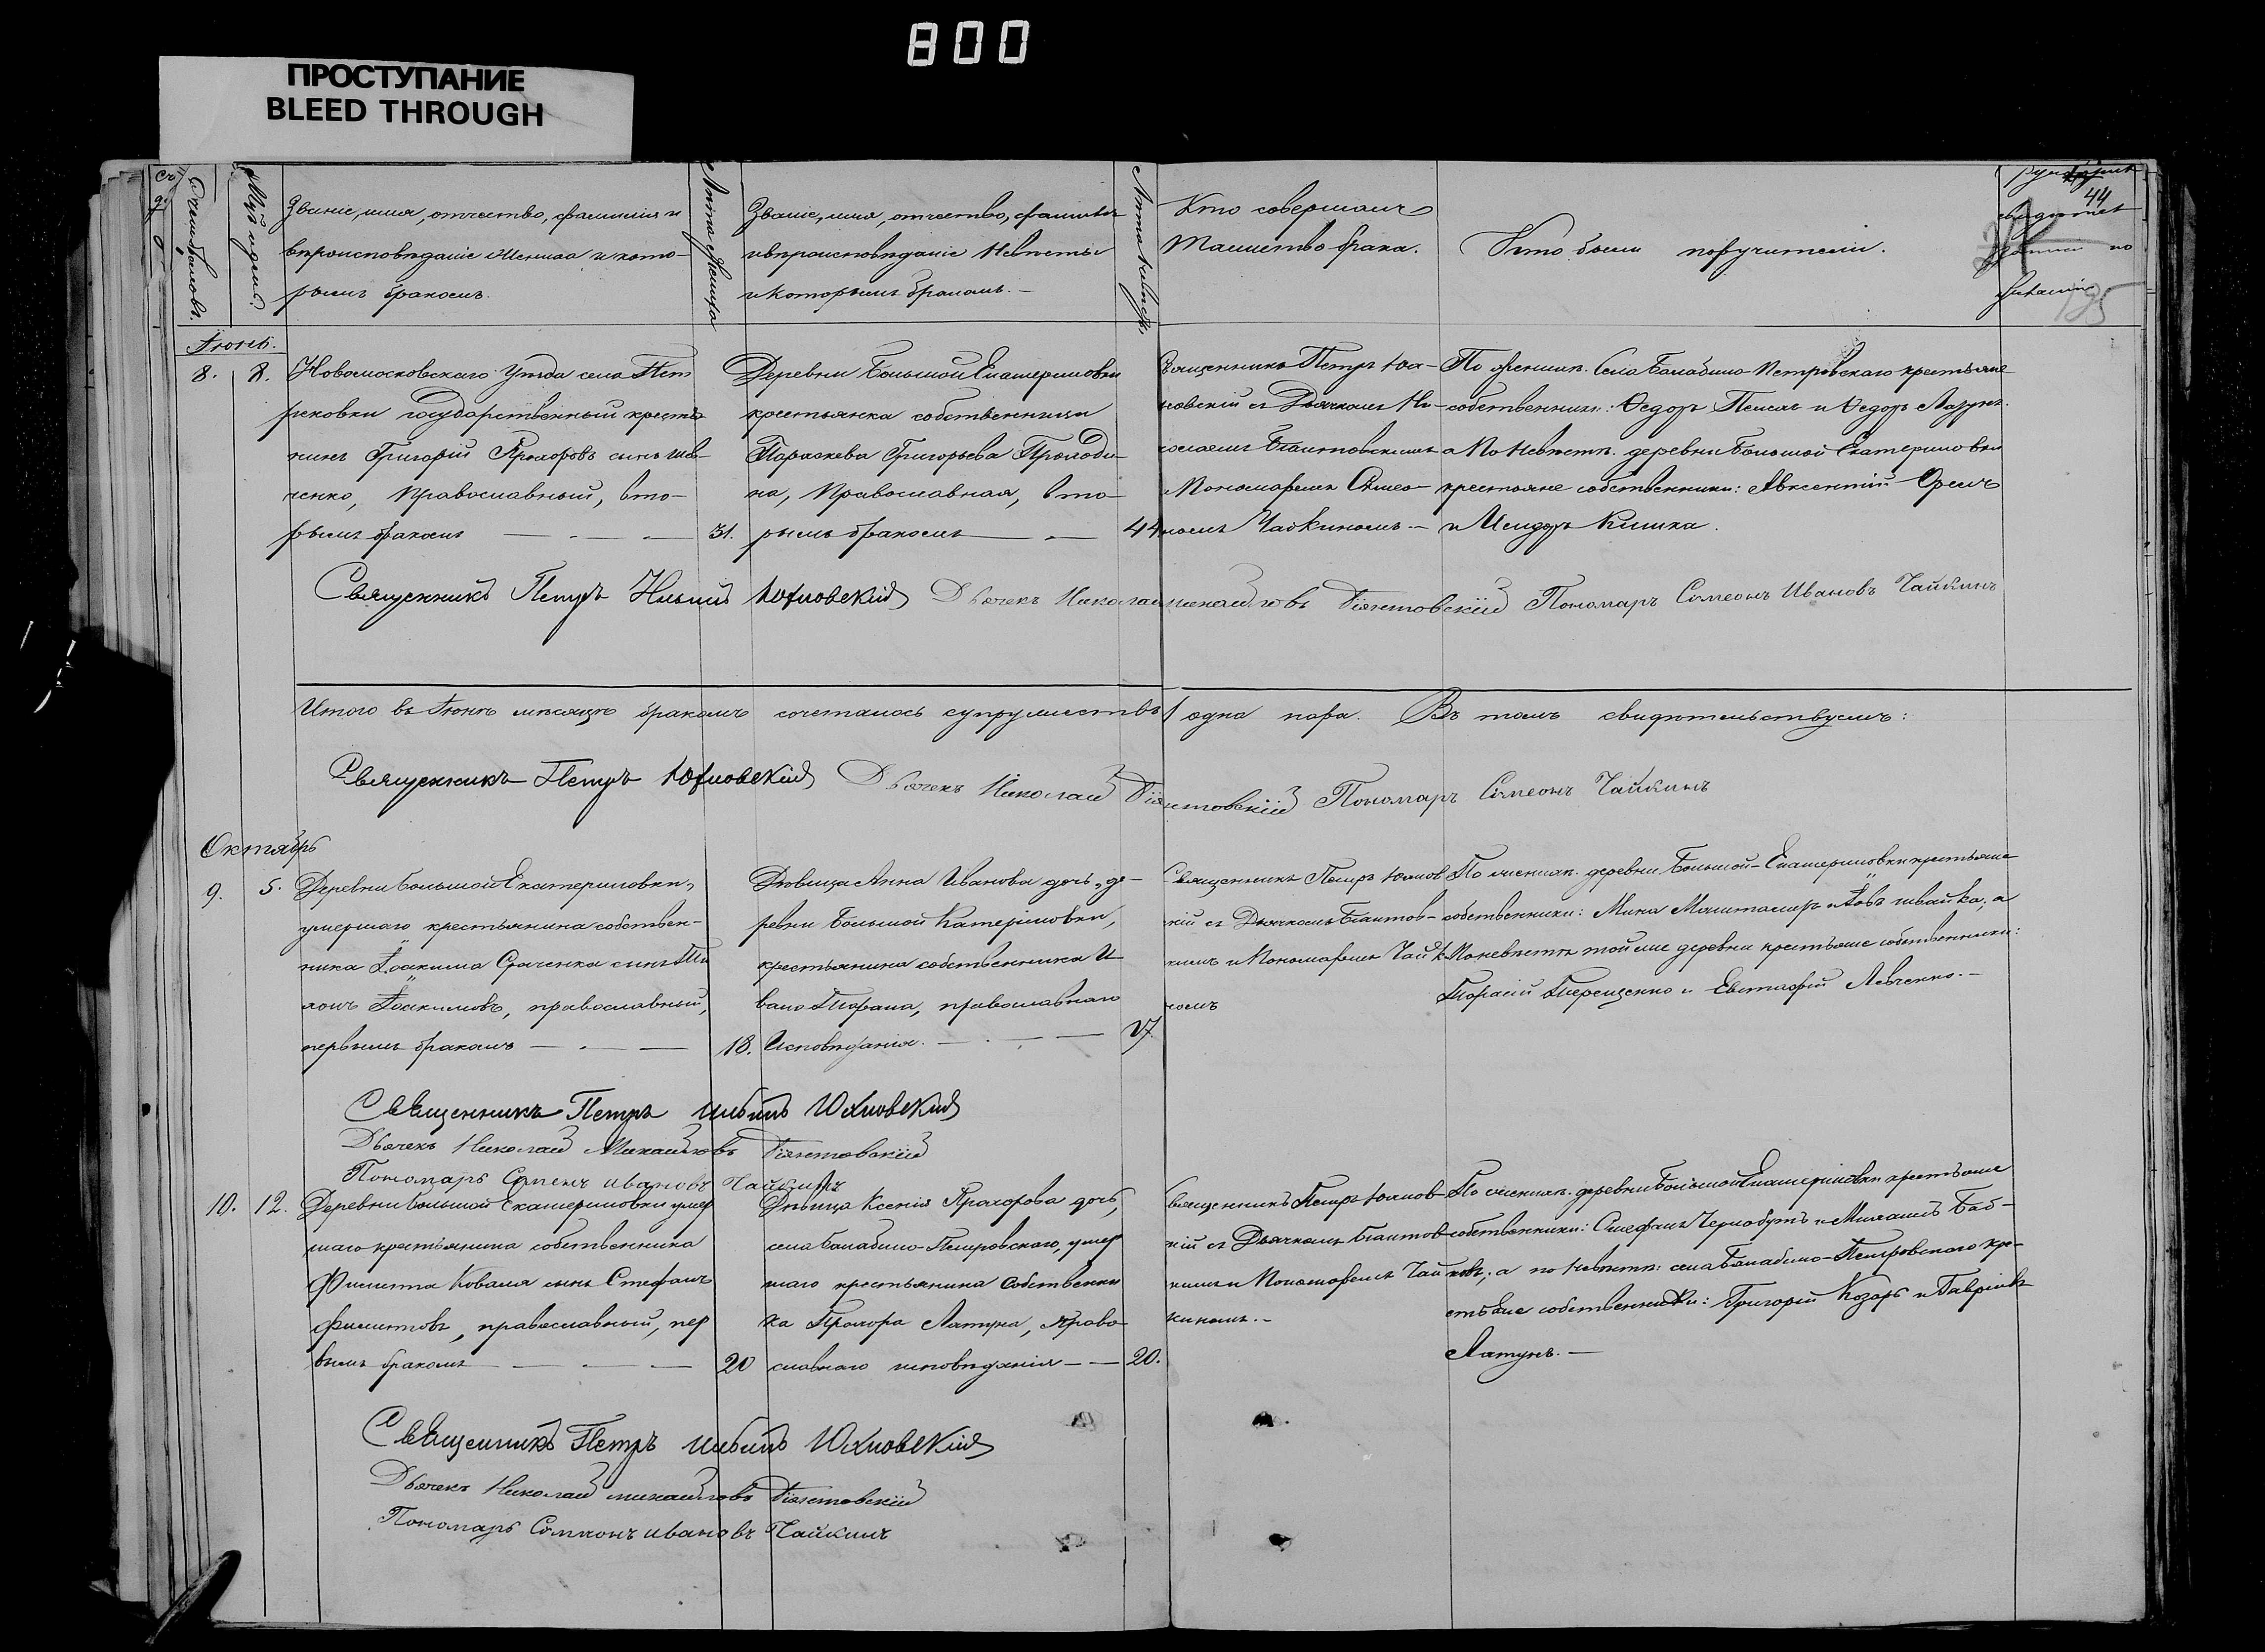 800
ПРОСТУПАНИЕ
BLEED THROUGH
44
195
Счетъ браковъ.
Мѣс. и день.
Званіе, имя, отчество, фамилія и
вѣроисповѣданіе жениха и кото-
рымъ бракомъ.
Лѣта жениха
Званіе, имя, отчество, фамилія
и вѣроисповѣданіе невѣсты
и которымъ бракомъ. —
Лѣта невѣсты
Кто совершалъ
таинство брака.
Кто были поручители.
Іюнь.
8. 8.
Новомосковскаго уѣзда села Пет
риковки государственный крестья
нинъ Григорій Прохоровъ сынъ Шев-
ченко, православный, вто-
рымъ бракомъ — 31.
Деревни Большой Екатериновки
крестьянка собственница
Параскева Григорьева
на, православная, вто-
рымъ бракомъ — 44
Священникъ Петръ Юх-
новскій съ Дьячкомъ Ни-
колаемъ Біантовскимъ
и Пономаремъ Симео-
номъ Чайкиномъ. —
По женихѣ. Села Балабино-Петровскаго крестьяне
собственники: Ѳедоръ и Ѳедоръ
а по невѣстѣ. деревни Большой Екатериновки
крестьяне собственники: Авксентій Орелъ
и Исидоръ Кишка.
Священникъ Петръ Ильинъ Юхновскій Дьячекъ Николай Михайловъ Біянтовскій Пономаръ Симеонъ Ивановъ Чайкинъ
Итого въ Іюнѣ мѣсяцѣ бракомъ сочеталось супружествъ 1 одна пара. Въ томъ свидѣтельствуемъ:
Священникъ Петръ Юхновскій Дьячекъ Николай Біянтовскій Пономаръ Симеонъ Чайкинъ
Октябрь
9. 5.
Деревни Большой Екатериновки,
умершаго крестьянина собствен-
ника Іоакима сынъ
Іоакимовъ, православный,
первымъ бракомъ — 18.
Дѣвица Анна Иванова дочь, де-
ревни Большой Катериновки,
крестьянина собственника И-
вана православнаго
исповѣданія. — 17.
Священникъ Петръ Юхнов
скій съ Дьячкомъ Біантов-
скимъ и Пономаремъ Чайки
номъ
По женихѣ. деревни Большой-Екатериновки крестьяне
собственники: Мина и Іовъ Швайка, а
по невѣстѣ той же деревни крестьяне собственники:
Терещенко и Евстафій Левченко. —
Священникъ Петръ Ильинъ Юхновскій
Дьячекъ Николай Михайловъ Біянтовскій
Пономаръ Симеонъ Ивановъ Чайкинъ
10. 12.
Деревни Большой Екатериновки умер
шаго крестьянина собственника
Филиппа Коваля сынъ Стефанъ
Филипповъ, православный, пер
вымъ бракомъ — 20
Дѣвица Ксенія Прохорова дочь,
села Балабино-Петровскаго, умер
шаго крестьянина собственни
ка Прохора Лятуна, право
славнаго исповѣданія — 20.
Священникъ Петръ Юхнов
скій съ Дьячкомъ Біантов
скимъ и Пономаремъ Чай
киномъ. —
По женихѣ. деревни Большой Екатериновки крестьяне
собственники: Стефанъ и Михаилъ Баб-
; а по невѣстѣ: села Балабино-Петровскаго кре-
стьяне собственники: Григорій Козарь и Гавріилъ
Лятунъ. —
Священникъ Петръ Ильинъ Юхновскій
Дьячекъ Николай Михайловъ Біянтовскій
Пономаръ Симеонъ Ивановъ Чайкинъ